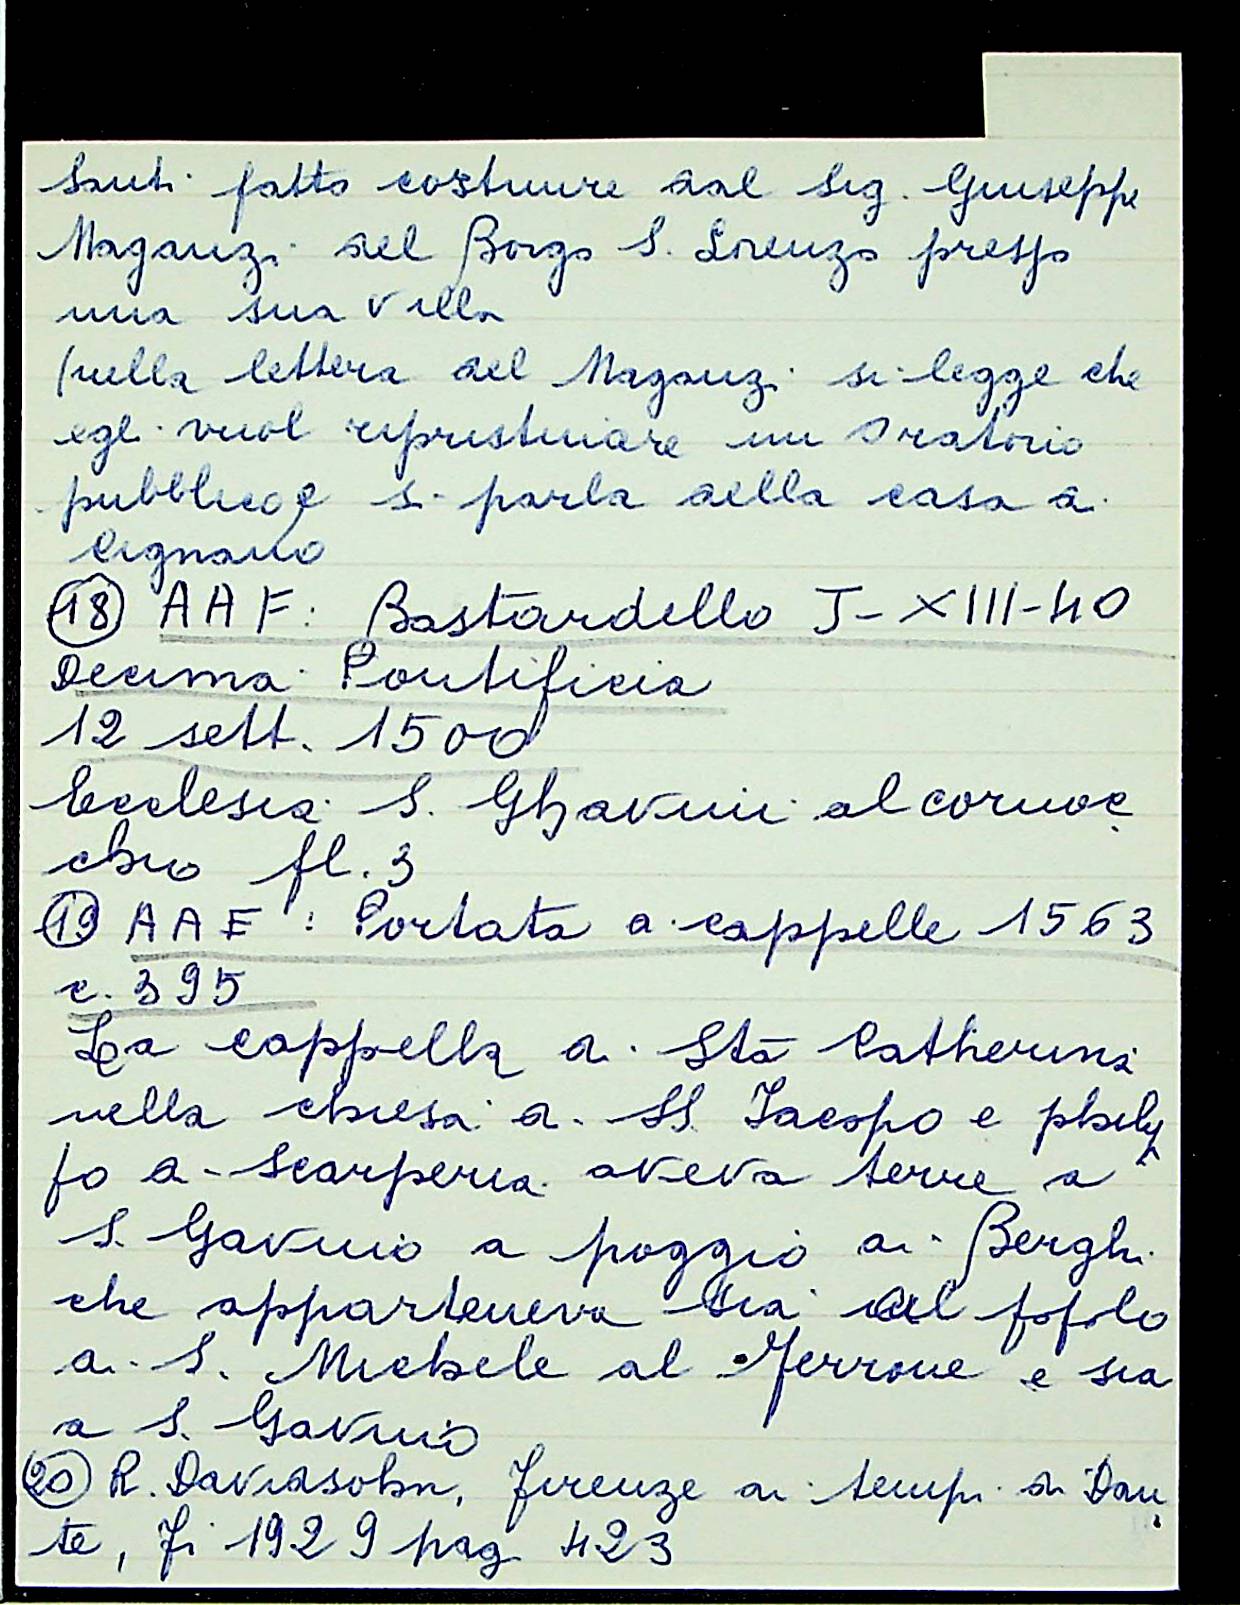 Santi fatto costruire dal Sig. Giuseppe
Maganzi del Borgo S. Lorenzo presso
una sua villa
(nella lettera del Maganzi si legge che
egli vuol ripristinare un Oratorio
pubblico e si parla della casa di
Cignano
(18) AAF: Bastardello J-XIII-40
Decima Pontificia
12 sett. 1500
Ecclesia S. Ghavini al cornoc
chio fl. 3
(19) AAF: Portata di cappelle 1563
c. 395
La cappella di Sta Catherina
nella chiesa di SS. Jacopo e phily
po di Scarperia aveva terre a
S. Gavino a poggio ai Berghi
che apparteneva sia al popolo
di S. Michele al Ferrone e sia
a S. Gavino
(20) R. Davidsohn, Firenze ai tempi di Dan
te, Fi 1929 pag 423